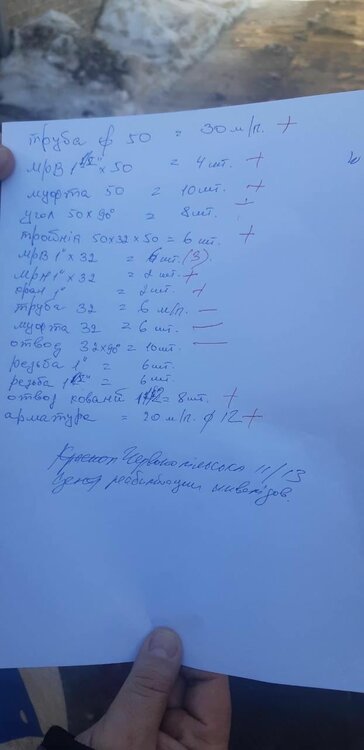 труба ф 50 = 30 м/п. +
МРВ 1 1/2" x 50 = 4 шт. +
муфта 50 = 10 шт. +
угол 50x90° = 8 шт. +
тройнік 50x32x50 = 6 шт. +
МРВ 1" x 32 = 6 шт. (3)
МРН 1" x 32 = 2 шт. +
кран 1" = 2 шт. +
труба 32 = 6 м/п. —
муфта 32 = 6 шт. —
отвод 32x90° = 10 шт. —
резьба 1" = 6 шт.
резьба 1 1/2" = 6 шт.
отвод кований 1 1/2 = 8 шт. +
арматура = 20 м/п. ф 12 +
11/13
Центр реабилитации инвалідов.